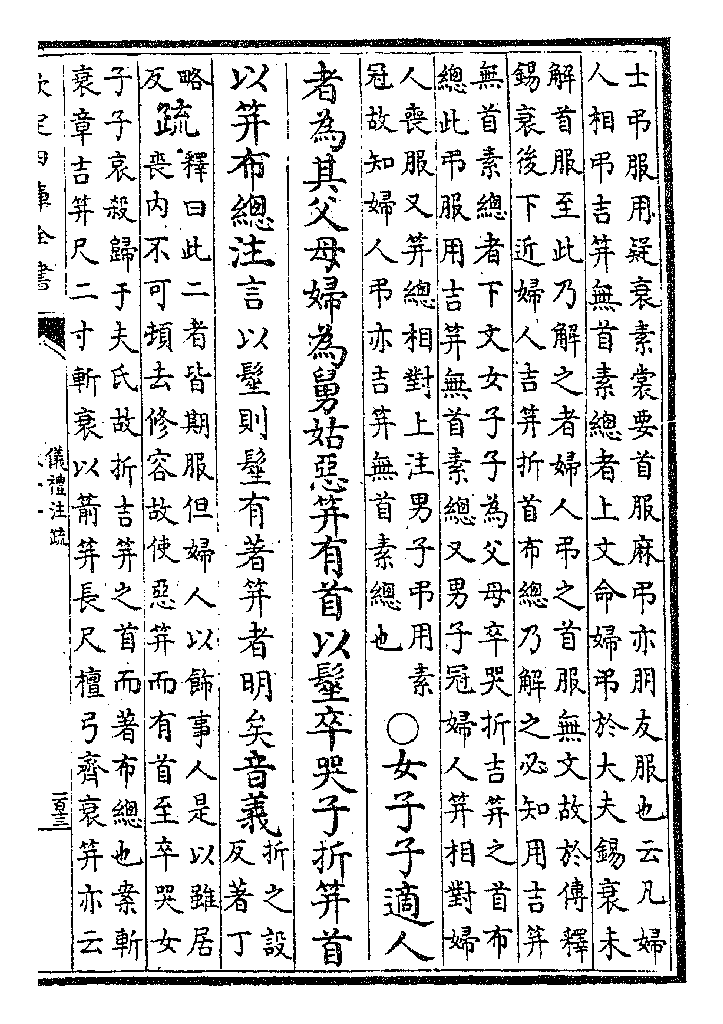 士弔服用疑衰素裳要首服麻弔亦朋友服也云凡婦
人相弔吉笄無首素總者上文命婦弔於大夫錫衰未
解首服至此乃解之者婦人弔之首服無文故於傳釋
錫衰後下近婦人吉笄折首布總乃解之必知用吉笄
無首素總者下文女子子為父母卒哭折吉笄之首布
總此弔服用吉笄無首素總又男子冠婦人笄相對婦
人喪服又笄總相對上注男子弔用素
冠故知婦人弔亦吉笄無首素總也
○女子子適人
者為其父母婦為舅姑惡笄有首以髽卒哭子折笄首
以笄布總注言以髽則髽有著笄者明矣音義
折之設
反著丁
略
反
疏
釋曰此二者皆期服但婦人以飾事人是以雖居
喪內不可頓去修容故使惡笄而有首至卒哭女
子子哀殺歸于夫氏故折吉笄之首而著布總也案斬
衰章吉笄尺二寸斬衰以箭笄長尺檀弓齊衰笄亦云
欽定四庫全書
儀禮注疏